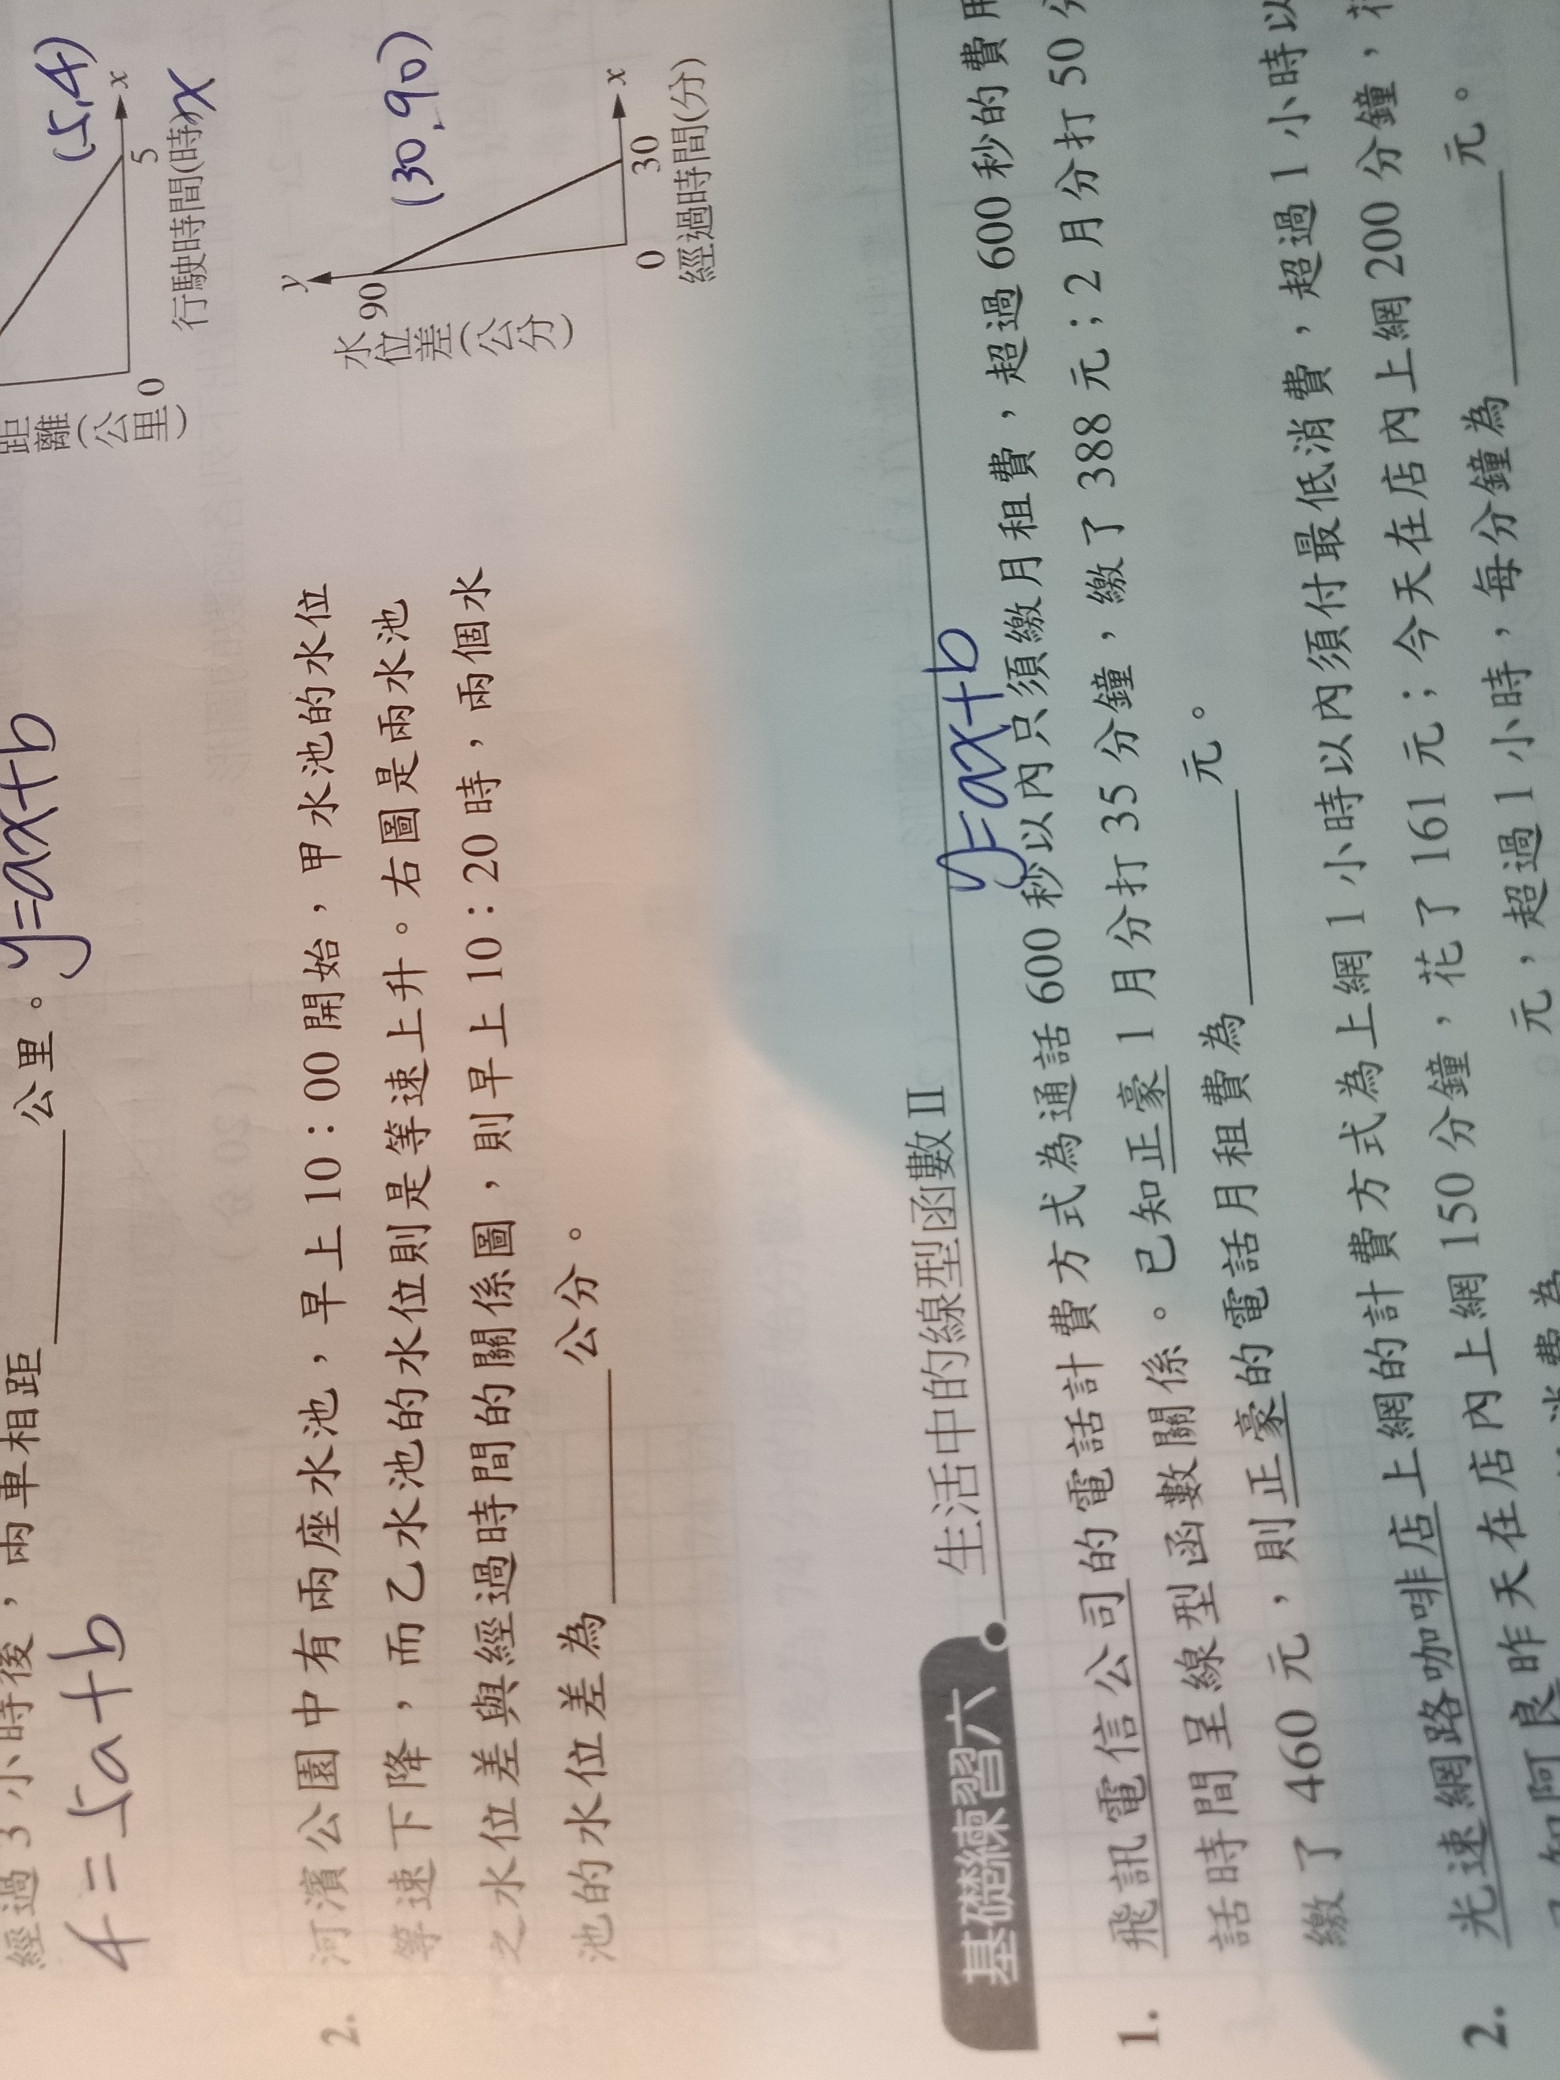 經過 3 小時後，兩車相距 公里。
y=ax+b
4=5a+b
距離(公里)
0
5
x
行駛時間(時)
x
(5,4)
2. 河濱公園中有兩座水池，早上 10：00 開始，甲水池的水位
等速下降，而乙水池的水位則是等速上升。右圖是兩水池
之水位差與經過時間的關係圖，則早上 10：20 時，兩個水
池的水位差為 公分。
y
90
水位差(公分)
0
30
x
經過時間(分)
(30,90)
基礎練習六 生活中的線型函數Ⅱ
y=ax+b
1. 飛訊電信公司的電話計費方式為通話 600 秒以內只須繳月租費，超過 600 秒的費用
話時間呈線型函數關係。已知正豪 1 月分打 35 分鐘，繳了 388 元；2 月分打 50 分
繳了 460 元，則正豪的電話月租費為 元。
2. 光速網路咖啡店上網的計費方式為上網 1 小時以內須付最低消費，超過 1 小時以
知阿良昨天在店內上網 150 分鐘，花了 161 元；今天在店內上網 200 分鐘，花
消費為 元，超過 1 小時，每分鐘為 元。